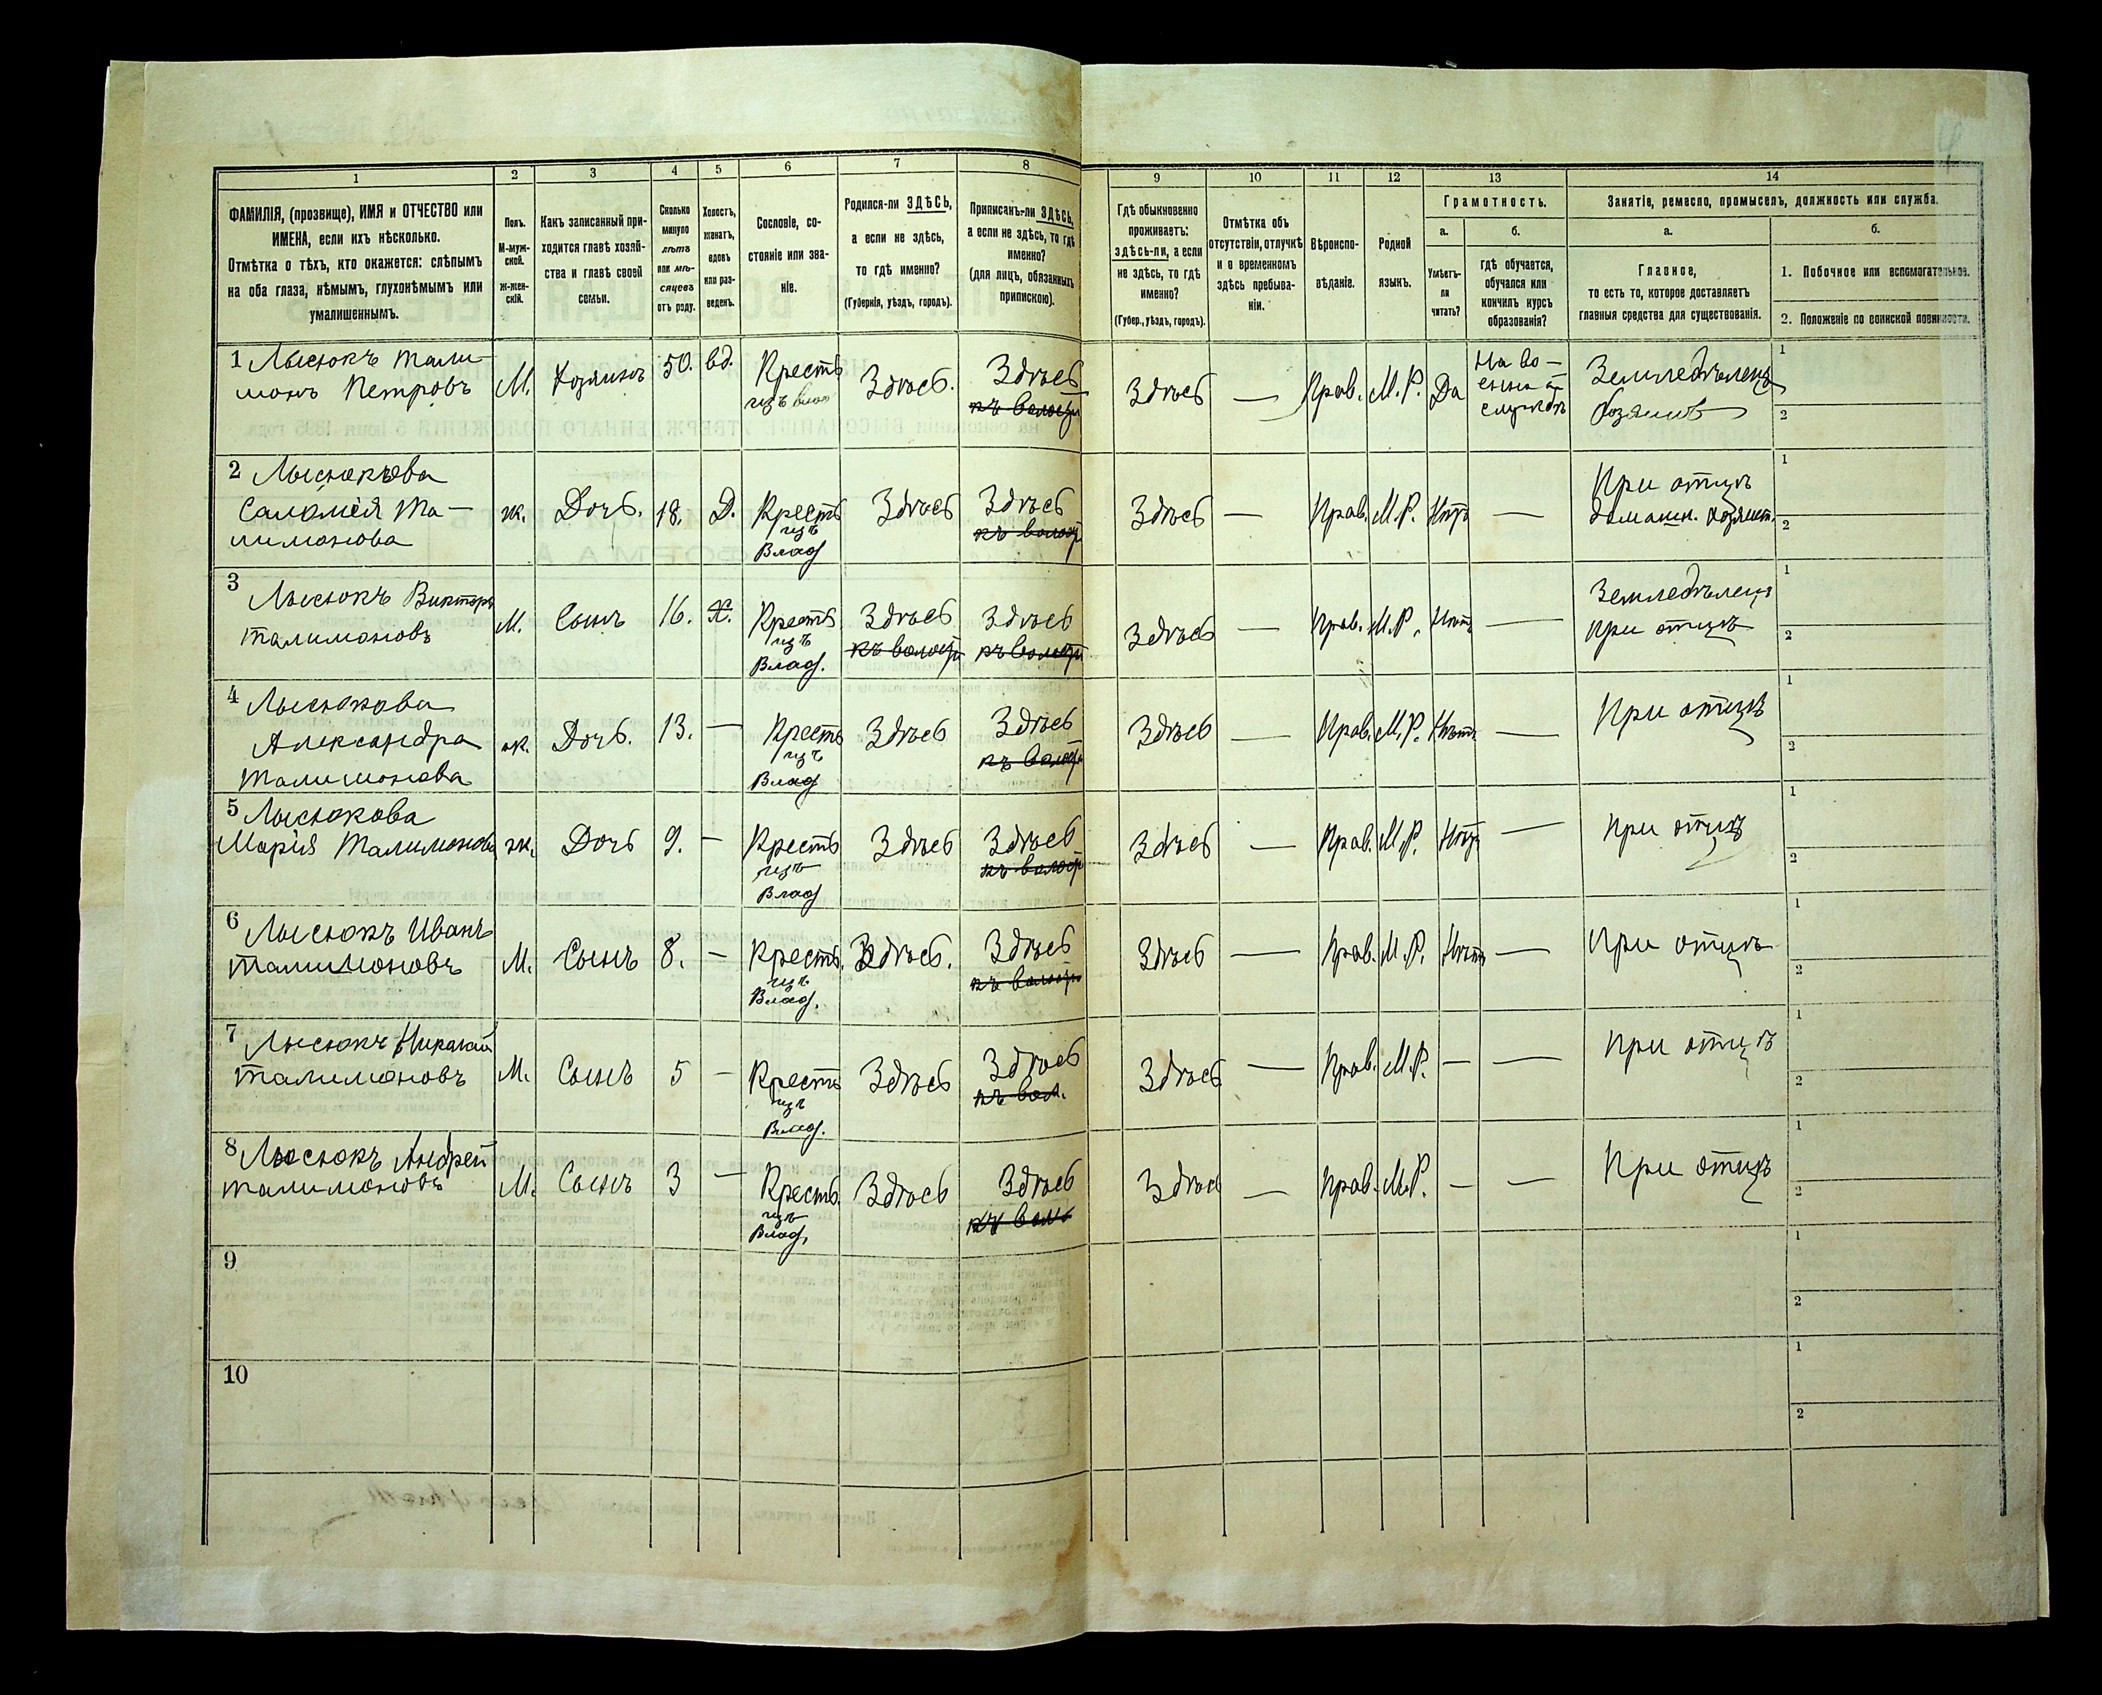 1 2 3 4 5 6 7 8 9 10 11 12 13 14
ФАМИЛІЯ, (прозвище), ИМЯ и ОТЧЕСТВО или
ИМЕНА, если ихъ нѣсколько.
Отмѣтка о тѣхъ, кто окажется: слѣпымъ
на оба глаза, нѣмымъ, глухонѣмымъ или
умалишеннымъ.
Полъ.
М-муж-
ской.
Ж-жен-
скій.
Какъ записанный при-
ходится главѣ хозяй-
ства и главѣ своей
семьи.
Сколько
минуло
лѣтъ
или мѣ-
сяцевъ
отъ роду.
Холостъ,
женатъ,
вдовъ
или раз-
веденъ.
Сословіе, со-
стояніе или зва-
ніе.
Родился-ли ЗДѢСЬ,
а если не здѣсь,
то гдѣ именно?
(Губернія, уѣздъ, городъ).
Приписанъ-ли ЗДѢСЬ,
а если не здѣсь, то гдѣ
именно?
(для лицъ, обязанныхъ
припискою).
Гдѣ обыкновенно
проживаетъ:
здѣсь-ли, а если
не здѣсь, то гдѣ
именно?
(Губер., уѣздъ, городъ).
Отмѣтка объ
отсутствіи, отлучкѣ
и о временномъ
здѣсь пребыва-
ніи.
Вѣроиспо-
вѣданіе.
Родной
языкъ.
Грамотность.
а.
Умѣетъ-
ли
читать?
б.
гдѣ обучается,
обучался или
кончилъ курсъ
образованія?
Занятіе, ремесло, промыселъ, должность или служба.
а.
Главное,
то есть то, которое доставляетъ
главныя средства для существованія.
б.
1. Побочное или вспомогательное.
2. Положеніе по воинской повинности.
1 Лысюкъ Тали-
монъ Петровъ
М. Хозяинъ 50. вд. Крестьь
изъ влад
Здѣсь. Здѣсь
къ волости
Здѣсь — Прав. М.Р. Да
На во-
енной
службѣ
Земледѣлецъ
Хозяинъ
1
2
2 Лысюкова
Саломея Та-
лимонова
ж. Дочь. 18. Д. Кресть
изъ
Влад
Здѣсь Здѣсь
къ волост
Здѣсь — Прав. М.Р. Нѣтъ —
При отцѣ
домашн. хозяйст.
1
2
3 Лысюкъ Викторъ
Талимоновъ
М. Сынъ 16. Х. Кресть
изъ
Влад.
Здѣсь
къ волости
Здѣсь
къ волости
Здѣсь — Прав. М.Р. Нѣтъ —
Земледѣлецъ
при отцѣ
1
2
4 Лысюкова
Александра
Талимонова
ж. Дочь. 13. — Кресть
изъ
Влад
Здѣсь Здѣсь
къ волост
Здѣсь — Прав. М.Р. Нѣтъ —
При отцѣ
1
2
5 Лысюкова
Марія Талимонова
ж. Дочь 9. — Кресть
изъ
Влад
Здѣсь Здѣсь
къ волост
Здѣсь — Прав. М.Р. Нѣтъ —
При отцѣ
1
2
6 Лысюкъ Иванъ
Талимоновъ
М. Сынъ 8. — Кресть.
изъ
Влад.
Здѣсь. Здѣсь
къ волости
Здѣсь — Прав. М.Р. Нѣтъ —
При отцѣ
1
2
7 Лысюкъ Николай
Талимоновъ
М. Сынъ 5 — Кресть
изъ
Влад.
Здѣсь Здѣсь
къ вол.
Здѣсь — Прав. М.Р. — —
При отцѣ
1
2
8 Лысюкъ Андрей
Талимоновъ
М. Сынъ 3 — Кресть
изъ
Влад.
Здѣсь Здѣсь
къ вол
Здѣсь — Прав. М.Р. — —
При отцѣ
1
2
9
1
2
10
1
2